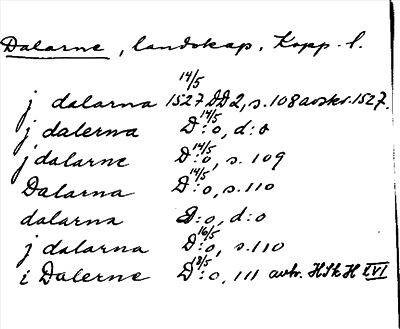 Dalarne, landskap, Kopp. l.
j dalarna 14/5 1527 DD2, s. 108 avskr. 1527.
j dalerna D:o 14/5, d:o
j dalarne D:o 14/5, s. 109
Dalarna D:o 14/5, s. 110
dalarna D:o, d:o
j dalarna D:o 16/5, s. 110
i Dalerne D:o 18/5, 111 avtr. HSH XVI